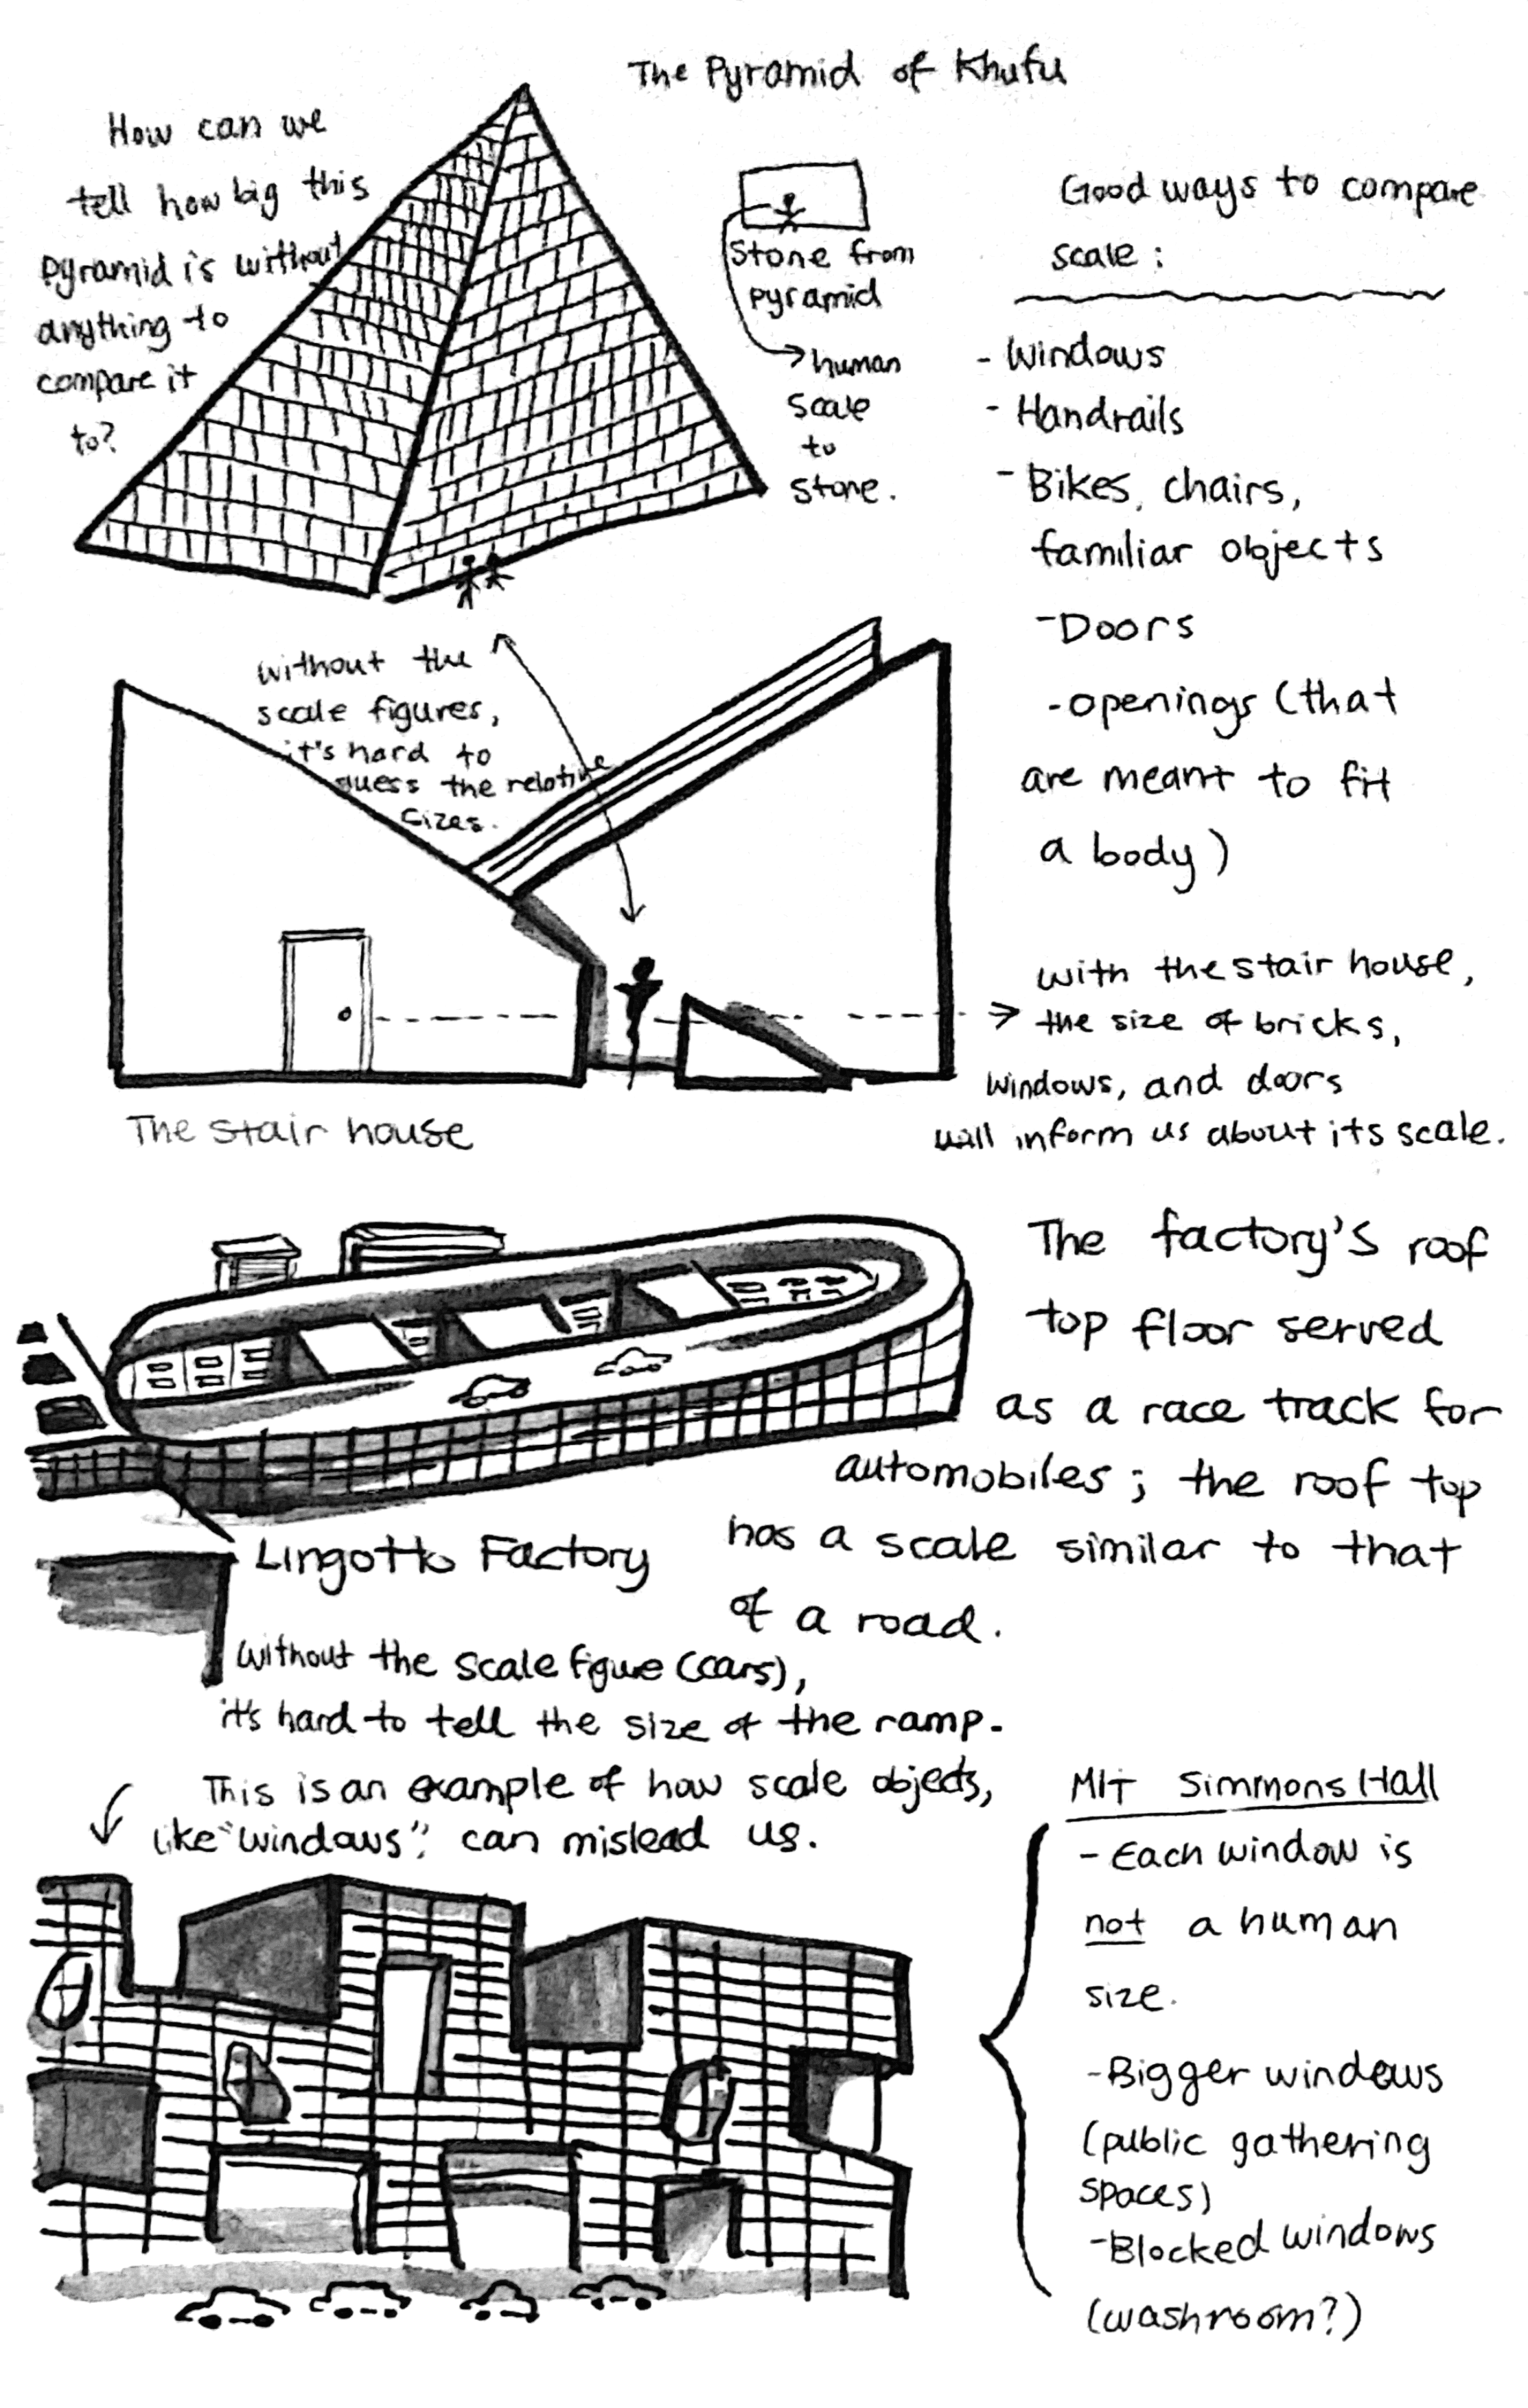 The Pyramid of Khufu
How can we
tell how big this
pyramid is without
anything to
compare it
to?
Stone from
pyramid
human
scale
to
stone.
Good ways to compare
scale:
- Windows
- Handrails
- Bikes, chairs,
familiar objects
- Doors
- openings (that
are meant to fit
a body)
without the
scale figures,
it's hard to
guess the relative
sizes.
with the stair house,
the size of bricks,
windows, and doors
will inform us about its scale.
The stair house
The factory's roof
top floor served
as a race track for
automobiles; the roof top
has a scale similar to that
of a road.
Lingotto Factory
without the scale figure (cars),
it's hard to tell the size of the ramp.
This is an example of how scale objects,
like "windows", can mislead us.
MIT Simmons Hall
- Each window is
not a human
size.
- Bigger windows
(public gathering
spaces)
- Blocked windows
(washroom?)